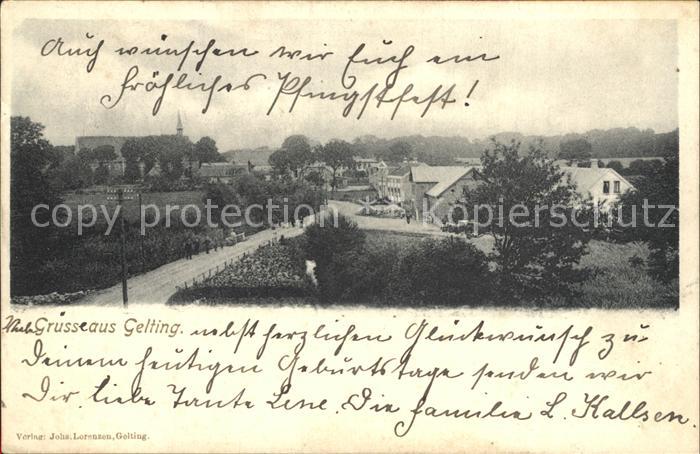 Auch wünschen wir Euch ein
fröhliches Pfingstfest!
copy protection kopierschutz
Viele Grüsse aus Gelting. nebst herzlichen Glückwunsch zu
Deinem heutigen Geburtstage senden wir
Dir, liebe Tante Lene. Die Familie L. Kallsen.
Verlag: Johs. Lorenzen, Gelting.